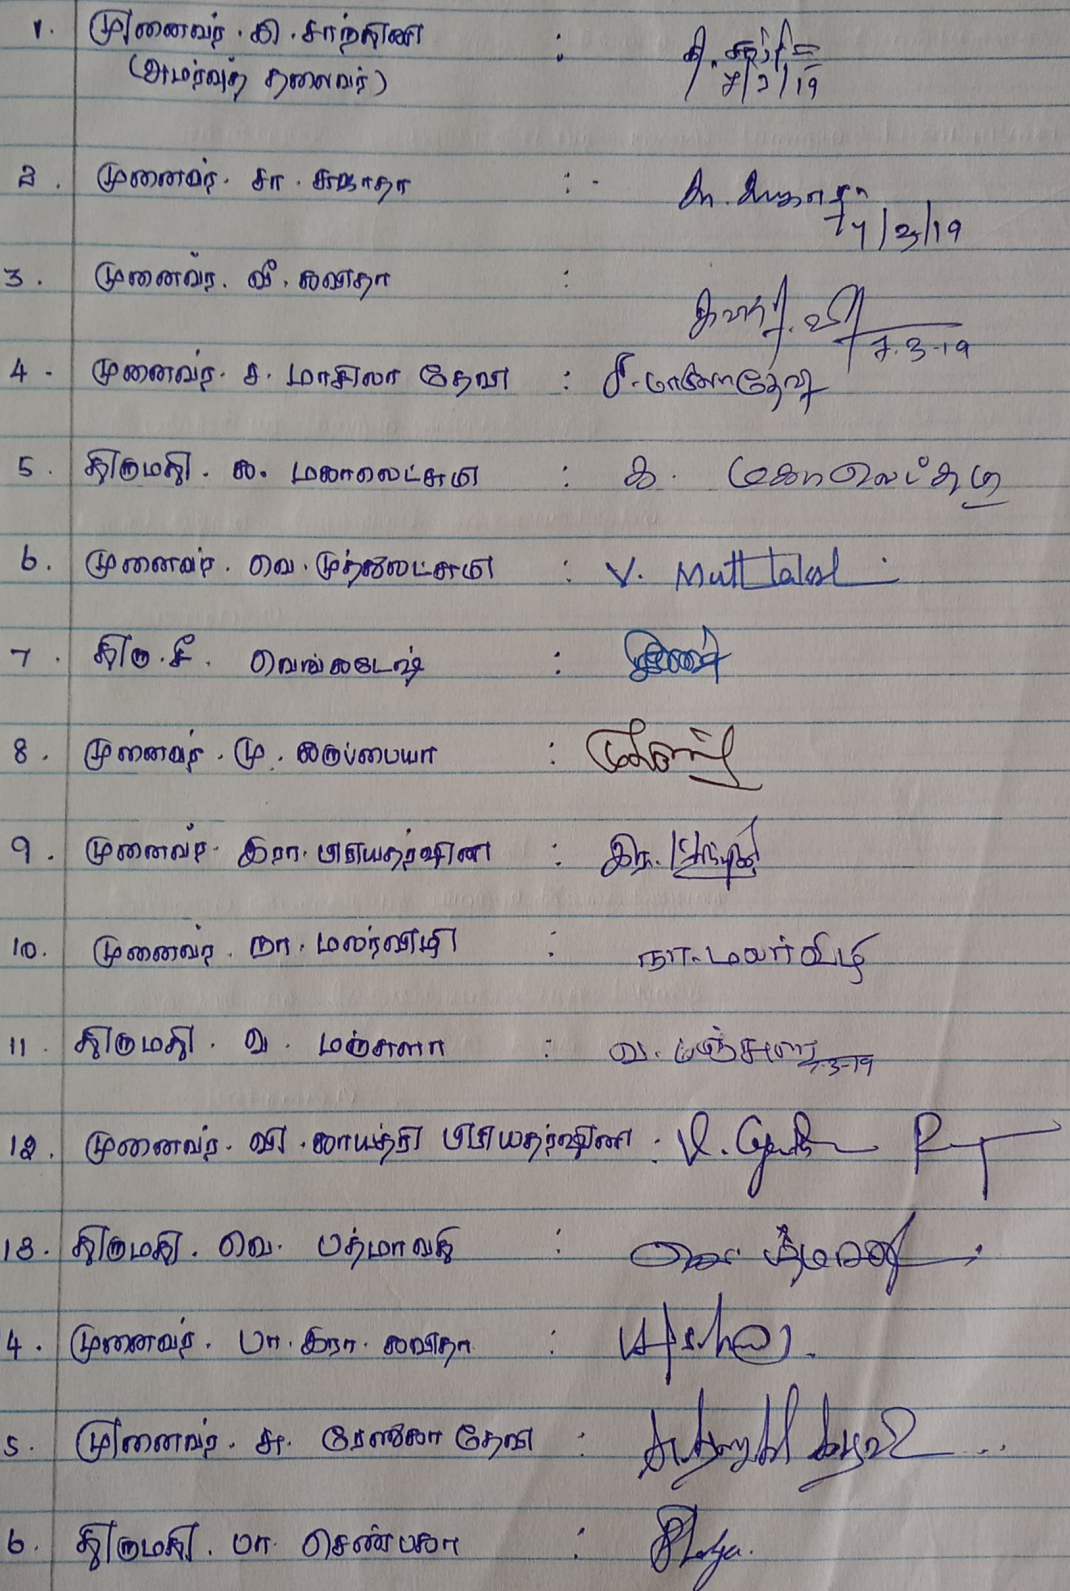 1. முனைவர். கி. சாந்தினி :
(அமர்வுத் தலைவர்) 7/3/19
2. முனைவர். சா. சுஜாதா : சா. சுஜாதா
7/3/19
3. முனைவர். வீ. கவிதா :
7.3.19
4. முனைவர். ச. மாசிலா தேவி : ச. மாசிலாதேவி
5. திருமதி. க. மகாலெட்சுமி : க. மகாலெட்சுமி
6. முனைவர். வெ. முத்துலட்சுமி : V.
7. திரு. சீ. வெங்கடேஷ் :
8. முனைவர். மு. கருப்பையா :
9. முனைவர். இரா. பிரியதர்ஷினி : இரா.
10. முனைவர். நா. மலர்விழி : நா. மலர்விழி
11. திருமதி. வ. மஞ்சுளா : வ. மஞ்சுளா 7-3-19
12. முனைவர். வி. காயத்ரி பிரியதர்ஷினி : V.
13. திருமதி. வெ. பத்மாவதி :
4. முனைவர். பா. இரா. கவிதா :
5. முனைவர். சு. ரேணுகா தேவி :
6. திருமதி. பா. செண்பகா :